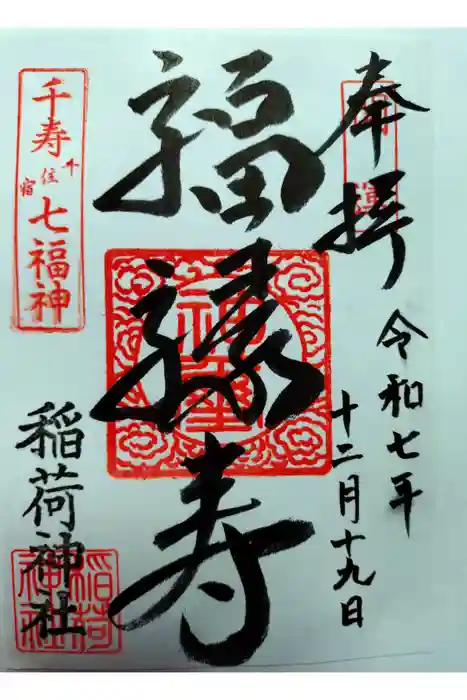 奉拝
令和七年
十二月十九日
福
縁
寿
千寿
千住宿
七福神
稲荷神社
稲荷
神社